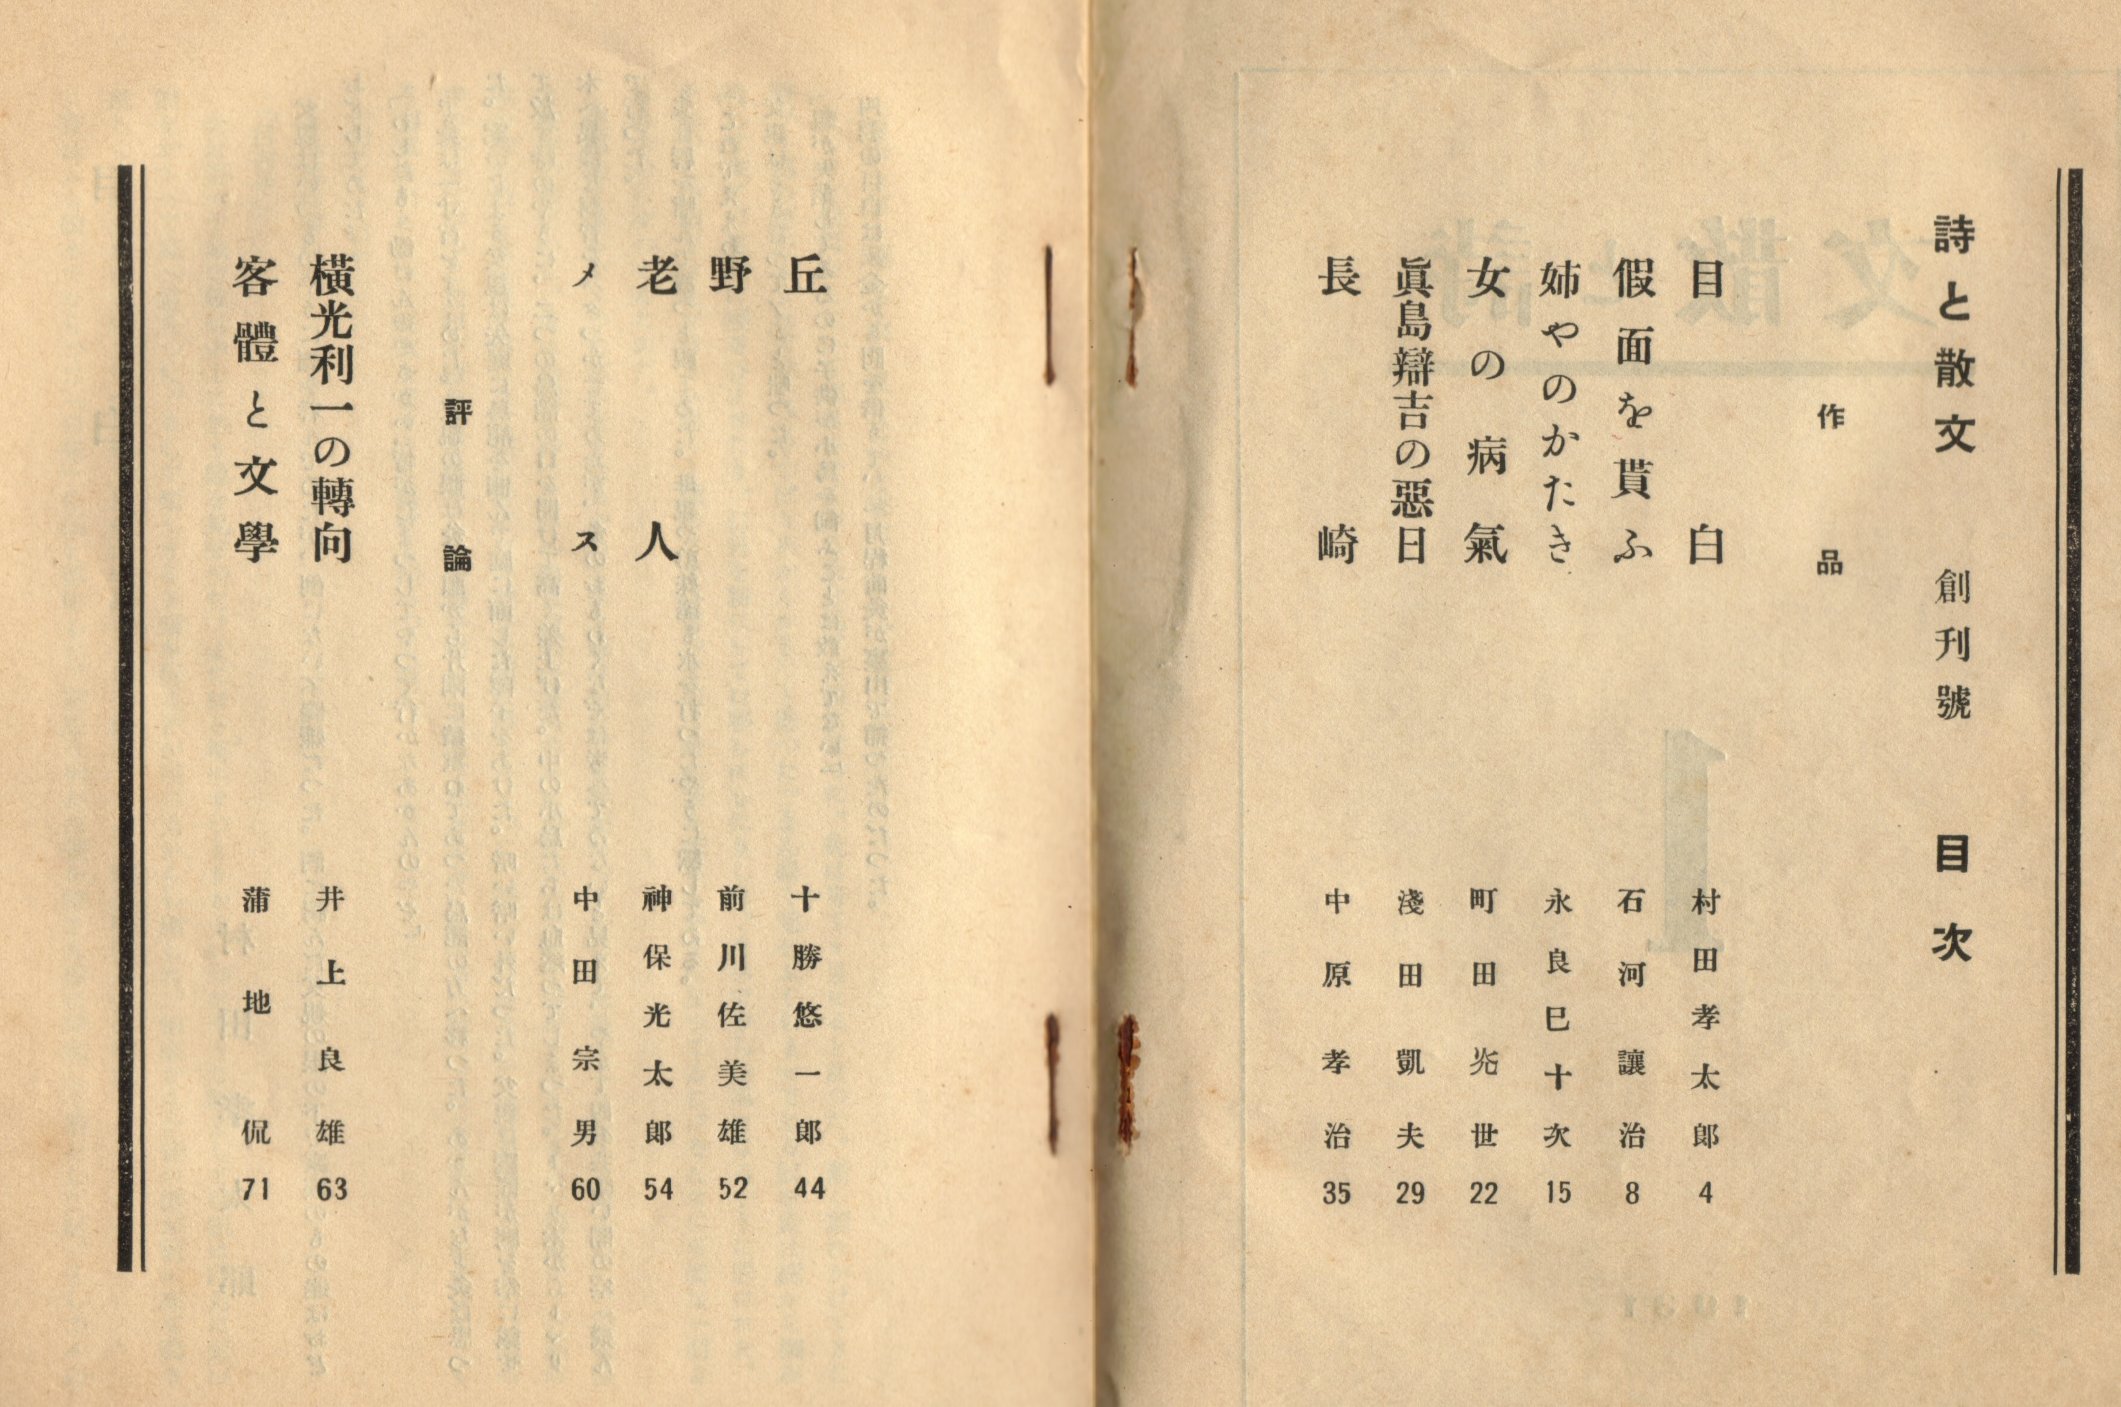 詩と散文 創刊號 目次
作品
目白 村田孝太郎 4
假面を貰ふ 石河讓治 8
姉やのかたき 永良巳十次 15
女の病氣 町田兊世 22
眞島辯吉の惡日 淺田凱夫 29
長崎 中原孝治 35
丘 十勝悠一郎 44
野 前川佐美雄 52
老人 神保光太郎 54
メス 中田宗男 60
評論
横光利一の轉向 井上良雄 63
客體と文學 蒲地侃 71